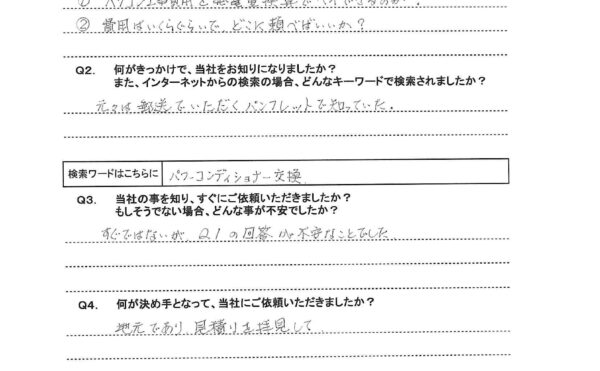 ② 費用はいくらぐらいで、どこに頼べばいいか?
Q2. 何がきっかけで、当社をお知りになりましたか?
また、インターネットからの検索の場合、どんなキーワードで検索されましたか?
元々は郵送でいただくパンフレットで知っていた。
検索ワードはこちらに パワーコンディショナー交換
Q3. 当社の事を知り、すぐにご依頼いただきましたか?
もしそうでない場合、どんな事が不安でしたか?
すぐではないが、Q1の回答が不安なことでした
Q4. 何が決め手となって、当社にご依頼いただきましたか?
地元であり見積りを拝見して